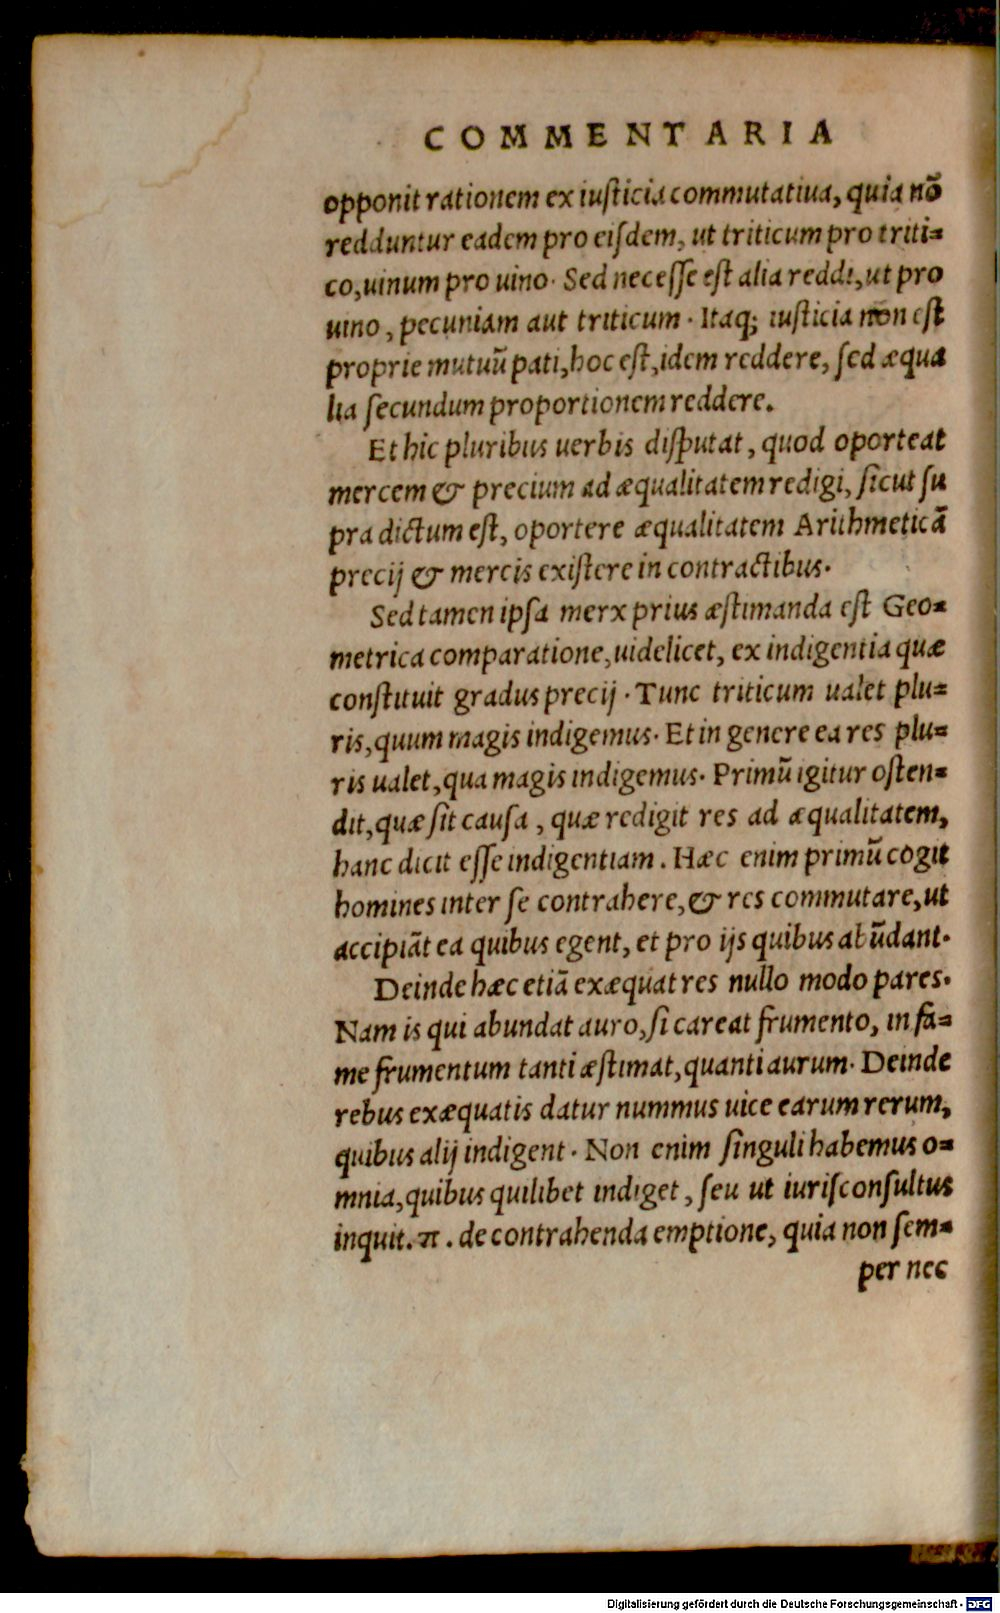 COMMENTARIA
opponit rationem ex iusticia commutatiua, quia nõ
redduntur eadem pro eiſdem, ut triticum pro triti=
co, uinum pro uino. Sed neceſſe eſt alia reddi, ut pro
uino, pecuniam aut triticum. Itaq; iusticia non eſt
proprie mutuũ pati, hoc eſt, idem reddere, ſed æqua
lia ſecundum proportionem reddere.
Et hic pluribus uerbis diſputat, quod oporteat
mercem & precium ad æqualitatem redigi, ſicut ſu
pra dictum eſt, oportere æqualitatem Arithmeticã
precij & mercis exiſtere in contractibus.
Sed tamen ipſa merx prius æſtimanda eſt Geo=
metrica comparatione, uidelicet, ex indigentia quæ
conſtituit gradus precij. Tunc triticum ualet plu=
ris, quum magis indigemus. Et in genere ea res plu=
ris ualet, qua magis indigemus. Primũ igitur oſten=
dit, quæ ſit cauſa, quæ redigit res ad æqualitatem,
hanc dicit eſſe indigentiam. Hæc enim primũ cogit
homines inter ſe contrahere, & res commutare, ut
accipiãt ea quibus egent, et pro ijs quibus abũdant.
Deinde hæc etiã exæquat res nullo modo pares.
Nam is qui abundat auro, ſi careat frumento, in fa=
me frumentum tanti æſtimat, quanti aurum. Deinde
rebus exæquatis datur nummus uice earum rerum,
quibus alij indigent. Non enim ſinguli habemus o=
mnia, quibus quilibet indiget, ſeu ut iuriſconſultus
inquit. π. de contrahenda emptione, quia non ſem=
per nec
Digitalisierung gefördert durch die Deutsche Forschungsgemeinschaft - DFG